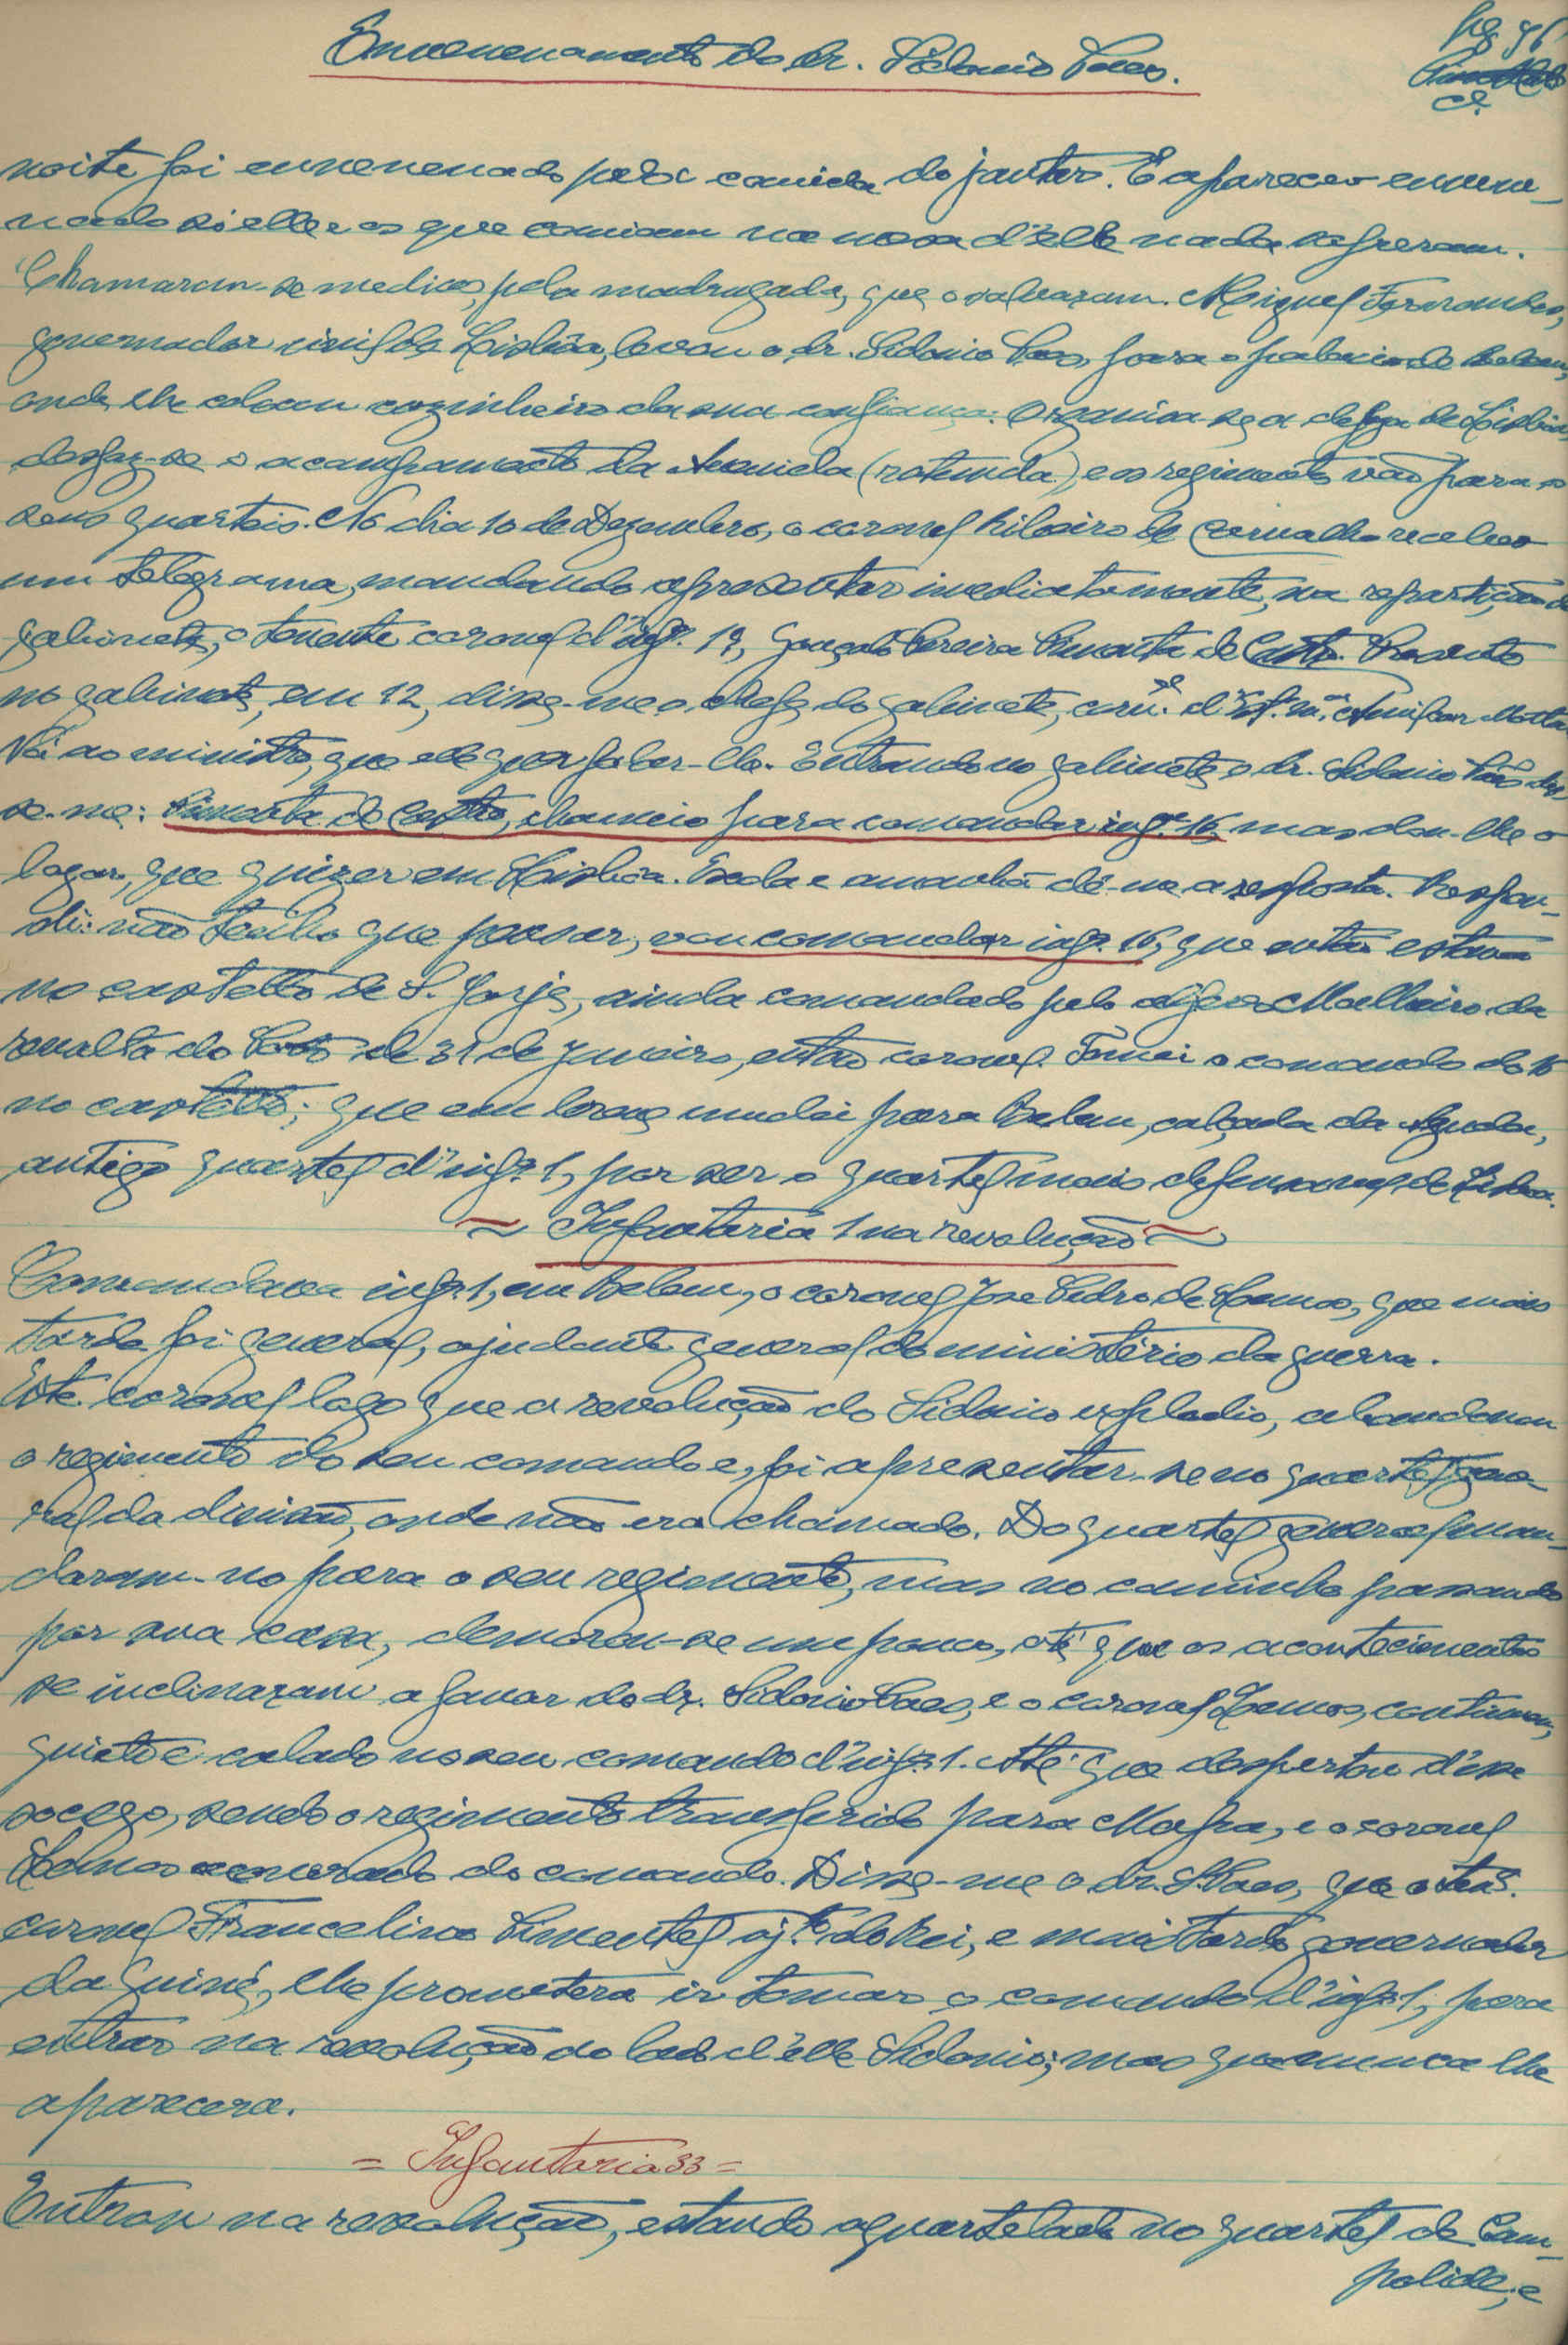 Envenenamento do dr. Sidonio Paes.
pg 96
noite foi envenenado pela comida do jantar. E apareceu envene-
nado só elle e os que comiam na mesa d'elle nada sofreram.
Chamaram-se medicos, pela madrugada, que o salvaram. Miguel Fernandes,
governador civil de Lisbôa, levou o dr. Sidonio Paes, para o palacio de Belem,
onde lhe colocou cozinheiro da sua confiança. Organisa-se a defeza de Lisbôa
desfaz-se o acampamento da Avenida (rotunda), e os regimentos vão para os
seus quarteis. No dia 10 de Dezembro, o coronel Ribeiro de Carvalho recebeu
um telegrama, mandando apresentar imediatamente, na repartição do
gabinete, o tenente coronel d'infª. 19, Gonçalo Pereira Pimenta de Castro. Presente
no gabinete, em 12, disse-me o chefe do gabinete, corel. d' Amilcar Motta
Vá ao ministro, que elle quer falar-lhe. Entrando no gabinete o dr. Sidonio Paes dis-
se-me: Pimenta de Castro, chamei-o para comandar infª. 16, mas dou-lhe o
logar, que quizer em Lisbôa. Escolha e amanhã dê-me a resposta. Respon-
di: não tenho que pensar, vou comandar infª. 16, que então estava
no castello de S. Jorge, ainda comandado pelo alferes Malheiro da
revolta do Porto de 31 de Janeiro, então coronel. Tomei o comando do 16
no castello; que em breve mudei para Belem, calçada da Ajuda,
antigo quartel d'infª. 1, por ser o quartel mais defensavel de Lisboa.
~ Infantaria 1 na revolução ~
Comandava infª. 1, em Belem, o coronel José Pedro de Lemos, que mais
tarde foi general, ajudante general do ministério da guerra.
Este coronel logo que a revolução do Sidonio explodio, abandonou
o regimento do seu comando e, foi apresentar-se no quartel gene-
ral da divisão, onde não era chamado. Do quartel general man-
daram-no para o seu regimento, mas no caminho passando
por sua casa, demorou-se um pouco, até que os acontecimentos
se inclinaram a favor do dr. Sidonio Paes, e o coronel Lemos, continuou,
quieto e calado no seu comando d'infª. 1. Até que despertou d'esse
socego, sendo o regimento transferido para Mafra, e o coronel
Lemos exonerado do comando. Disse-me o dr. S. Paes, que o tene.
coronel Francelino Pimentel ajte. do Rei, e mais tarde governador
da Guiné, lhe prometera ir tomar o comando d'infª 1, para
entrar na revolução do lado d'elle Sidonio; mas que nunca lhe
aparecera.
= Infantaria 33 =
Entrou na revolução, estando aquartelado no quartel de Cam-
polide, e